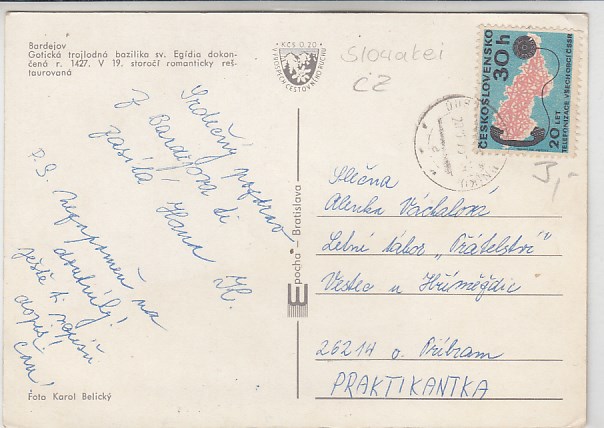 Bardejov
Gotická trojlodná bazilika sv. Egídia dokon-
čená r. 1427. V 19. storočí romanticky reš-
taurovaná
Kčs 0.20
V PROSPECH CESTOVNÉHO RUCHU
Slovakei
CZ
ČESKOSLOVENSKO
30h
20 LET
TELEFONIZACE VŠECH OBCÍ ČSSR
3,-
Srdečný pozdrav
z Bardejova ti
zasílá Hana
H.
P.S. Nezapomeň na
doutníky!
ještě ti napíšu
dopis!
Čau!
Slečna
Alenka Váchalová
Letní tábor „Přátelství"
Vestec u Hříměždic
26214 o. Příbram
PRAKTIKANTKA
Epocha – Bratislava
Foto Karol Belický